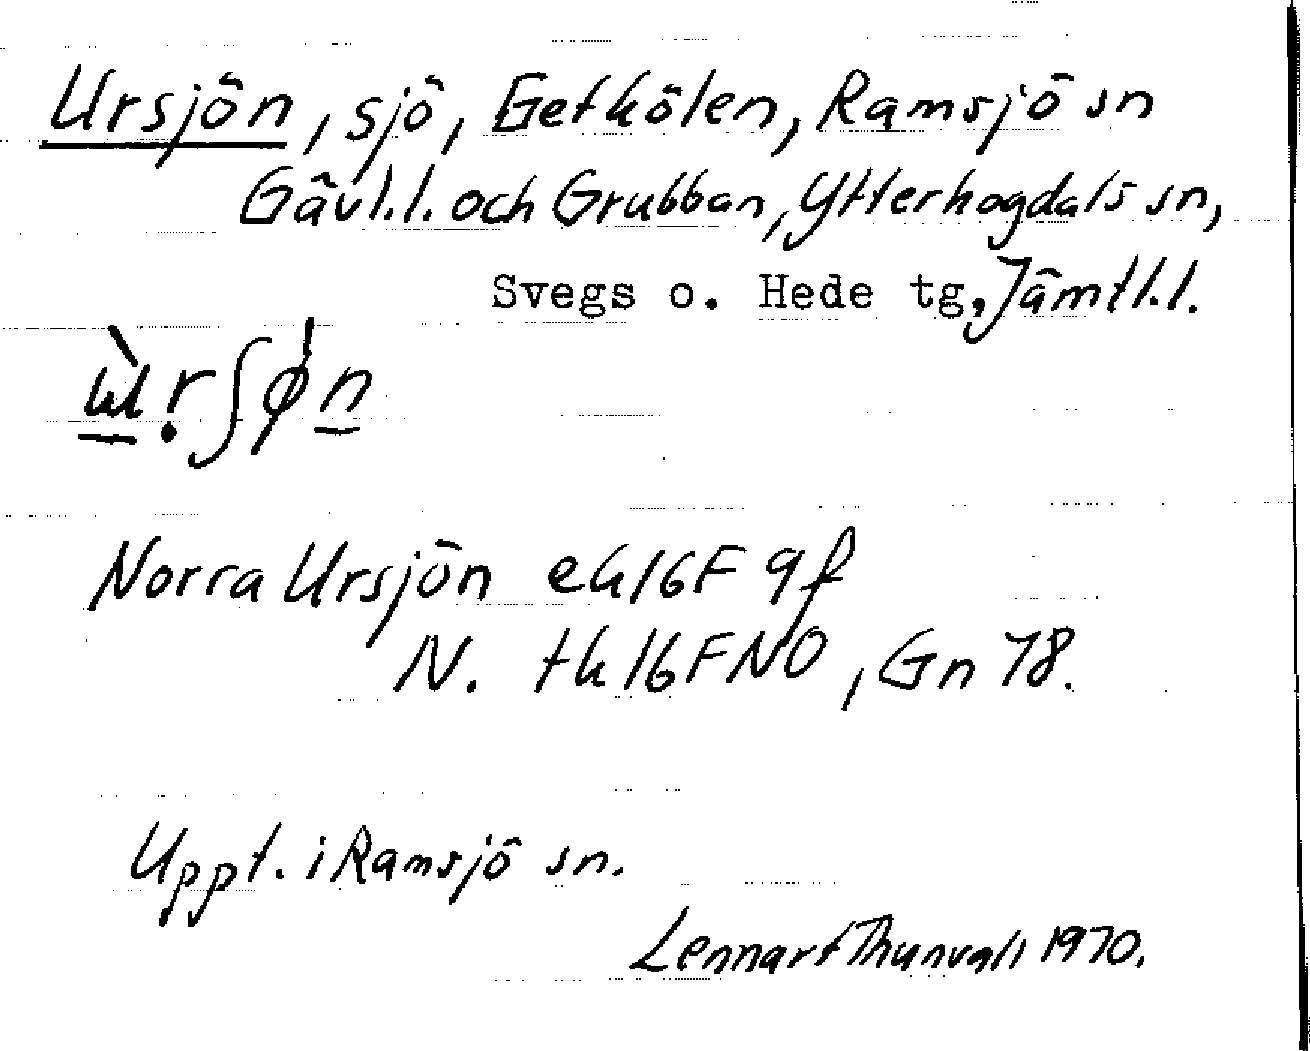 Ursjön, sjö, Getkölen, Ramsjö sn
Gävl.l. och Grubban, Ytterhogdals sn,
Svegs o. Hede tg, Jämtl.l.
Norra Ursjön ek 16F 9f
N. tk 16F NO, Gn 78.
Uppt. i Ramsjö sn.
Lennart Thunvall 1970.